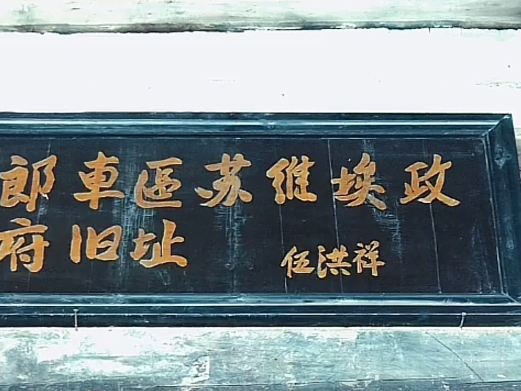 郎車區苏維埃政
府旧址
伍洪祥